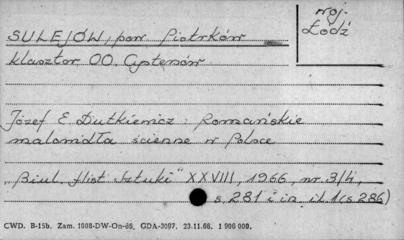 SULEJÓW, pow Piotrków
woj.
Łódź
klasztor OO. Cystersów
Józef E. Dutkiewicz: Romańskie
malowidła ścienne w Polsce
"Biul. Hist Sztuki" XXVIII, 1966, nr. 3/4,
s. 281 i in. il. 1 (s. 286)
CWD. B-15b. Zam. 1008-DW-On-66. GDA-3097. 23.11.66. 1 906 000.